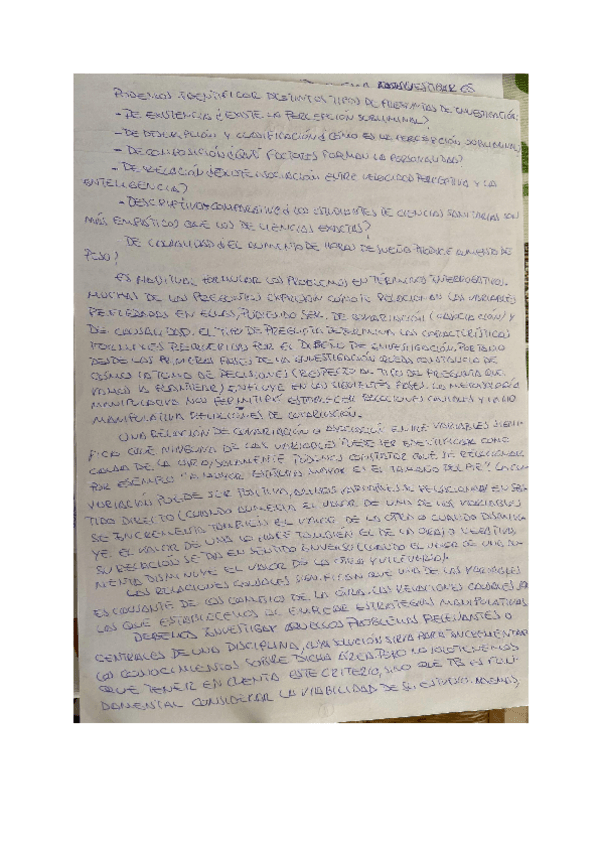 PODEMOS IDENTIFICAR DISTINTOS TIPOS DE PREGUNTAS DE INVESTIGACIÓN:
- DE EXISTENCIA ¿EXISTE LA PERCEPCIÓN SUBLIMINAL?
- DE DESCRIPCIÓN Y CLASIFICACIÓN ¿CÓMO ES LA PERCEPCIÓN SUBLIMINAL?
- DE COMPOSICIÓN ¿QUÉ FACTORES FORMAN LA PERSONALIDAD?
- DE RELACIÓN ¿EXISTE ASOCIACIÓN ENTRE VELOCIDAD PERCEPTIVA Y LA
INTELIGENCIA?
- DESCRIPTIVO-COMPARATIVO ¿LOS ESTUDIANTES DE CIENCIAS SANITARIAS SON
MÁS EMPÁTICOS QUE LOS DE CIENCIAS EXACTAS?
DE CAUSALIDAD ¿EL AUMENTO DE HORAS DE SUEÑO PRODUCE AUMENTO DE
PESO?
ES HABITUAL FORMULAR LOS PROBLEMAS EN TÉRMINOS INTERROGATIVOS.
MUCHAS DE LAS PREGUNTAS EXPRESAN CÓMO SE RELACIONAN LAS VARIABLES
REFLEJADAS EN ELLAS, PUDIENDO SER: DE COVARIACIÓN (ASOCIACIÓN) Y
DE CAUSALIDAD. EL TIPO DE PREGUNTA DETERMINA LAS CARACTERÍSTICAS
REQUERIDAS POR EL DISEÑO DE INVESTIGACIÓN. POR TANTO
DESDE LAS PRIMERAS FASES DE LA INVESTIGACIÓN QUEDA CONSTANCIA DE
CÓMO LA TOMA DE DECISIONES (RESPECTO AL TIPO DE PREGUNTA QUE
VAMOS A PLANTEAR) INFLUYE EN LAS SIGUIENTES FASES. LA METODOLOGÍA
MANIPULATIVA NOS PERMITIRÁ ESTABLECER RELACIONES CAUSALES Y LA NO
MANIPULATIVA RELACIONES DE COVARIACIÓN.
UNA RELACIÓN DE COVARIACIÓN O ASOCIACIÓN ENTRE VARIABLES SIGNI-
FICA QUE NINGUNA DE LAS VARIABLES PUEDE SER IDENTIFICADA COMO
CAUSA DE LA OTRA, SOLAMENTE PODEMOS CONSTATAR QUE SE RELACIONAN
POR EJEMPLO "A MAYOR ESTATURA MAYOR ES EL TAMAÑO DEL PIE". LA CO-
VARIACIÓN PUEDE SER POSITIVA, AMBAS VARIABLES SE RELACIONAN EN SEN-
TIDO DIRECTO (CUANDO AUMENTA EL VALOR DE UNA DE LAS VARIABLES
SE INCREMENTA TAMBIÉN EL VALOR DE LA OTRA O CUANDO DISMINU-
YE EL VALOR DE UNA LO HACE TAMBIÉN EL DE LA OTRA) O NEGATIVA,
SU RELACIÓN SE DA EN SENTIDO INVERSO (CUANDO EL VALOR DE UNA AU-
MENTA DISMINUYE EL VALOR DE LA OTRA Y VICEVERSA).
LAS RELACIONES CAUSALES SIGNIFICAN QUE UNA DE LAS VARIABLES
ES CAUSANTE DE LOS CAMBIOS DE LA OTRA. LAS RELACIONES CAUSALES SON
LAS QUE ESTABLECEMOS AL EMPLEAR ESTRATEGIAS MANIPULATIVAS.
DEBEMOS INVESTIGAR AQUELLOS PROBLEMAS RELEVANTES O
CENTRALES DE UNA DISCIPLINA, CUYA SOLUCIÓN SIRVA PARA INCREMENTAR
LOS CONOCIMIENTOS SOBRE DICHA ÁREA PERO NO SOLO TENEMOS
QUE TENER EN CUENTA ESTE CRITERIO, SINO QUE TB ES FUN-
DAMENTAL CONSIDERAR LA VIABILIDAD DE SU ESTUDIO. ADEMÁS,